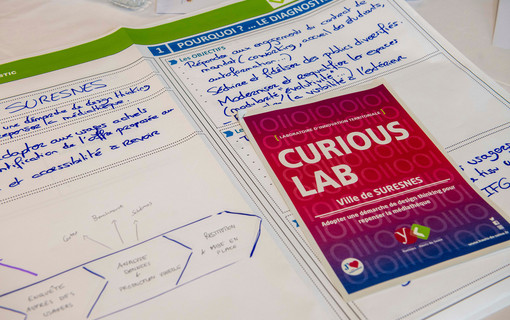 STIC
1 POURQUOI ? ... LE DIAGNOSTIC
LES OBJECTIFS
Répondre aux engagements du contrat de
mandat (coworking, accueil des étudiants,
autoformation)
Séduire et fidéliser des publics diversifiés.
Moderniser et requalifier les espaces
(modularité, évolutivité
la visibilité à l'extérieur
SURESNES
une démarche de design thinking
repenser la médiathèque
adapter aux usages actuels
identification de l'offre proposée au
et accessibilité à revoir
[ LABORATOIRE D'INNOVATION TERRITORIALE ]
CURIOUS
LAB
Ville de SURESNES
Adopter une démarche de design thinking pour
repenser la médiathèque
usagers
IFG
ENQUÊTE
AUPRÈS DES
USAGERS
ANALYSE
DONNÉES
RESTITUTION
& MISE EN
PLACE